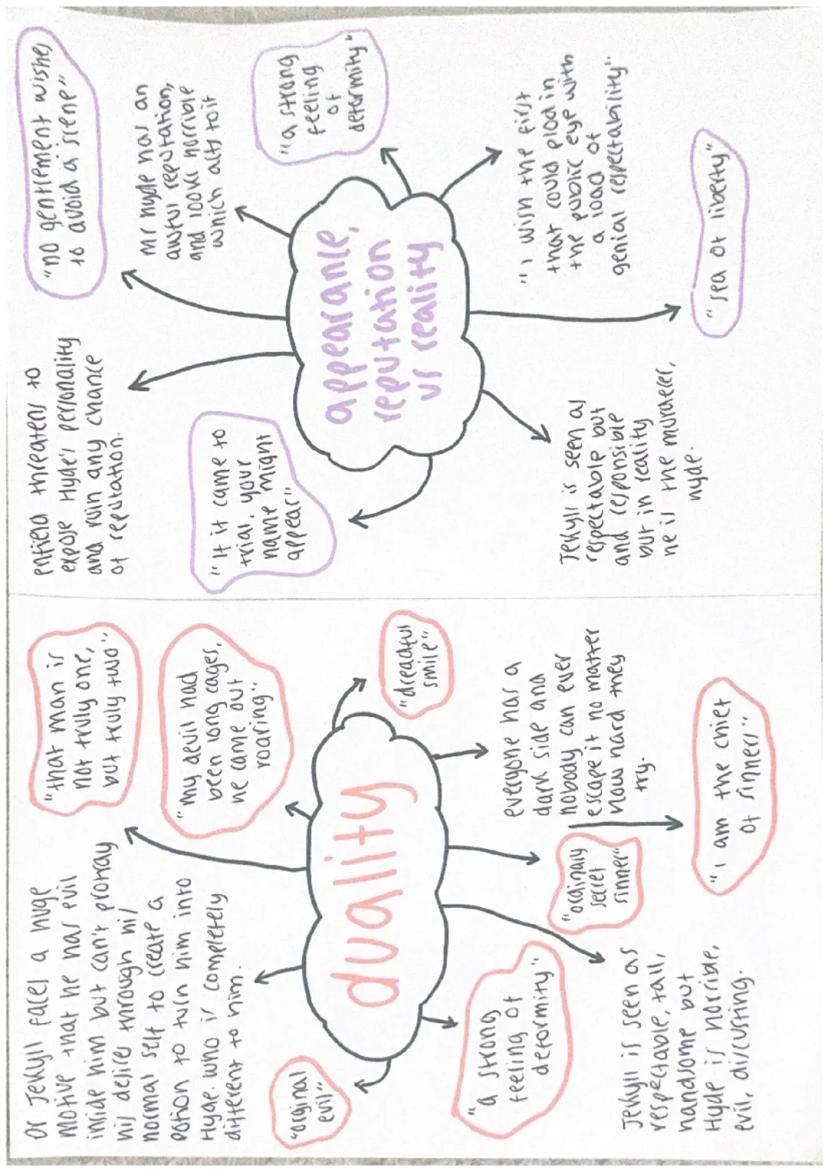 Dr Jekyll faces a huge
motive that he has evil
inside him but can't protray
his desires through his
normal self to create a
potion to turn him into
Hyde. who is completely
different to him.
"that man is
not truly one,
but truly two"
"my devil had
been long cages,
he came out
roaring"
"orginal
evil"
duality
"dreadful
smile"
"a strong
feeling of
deformity"
"ordinary
secret
sinner"
everyone has a
dark side and
nobody can ever
escape it no matter
how hard they
try.
Jekyll is seen as
respectable, tall,
handsome but
Hyde is horrible,
evil, discusting.
"I am the chief
of sinners"
enfield threatens to
expose Hyde's personality
and ruin any chance
of reputation.
"no gentlement wishes
to avoid a scene"
Mr Hyde has an
awful reputation,
and looks horrible
which to it
"If it came to
trial, your
name might
appear"
"a strong
feeling
of
deformity"
appearance,
reputation
vs reality
Jekyll is seen as
respectable but
and responsible
but in reality
he is the murderer,
Hyde.
"I wish the first
that could plod in
the public eye with
a load of
genial respectability"
"sea of liberty"